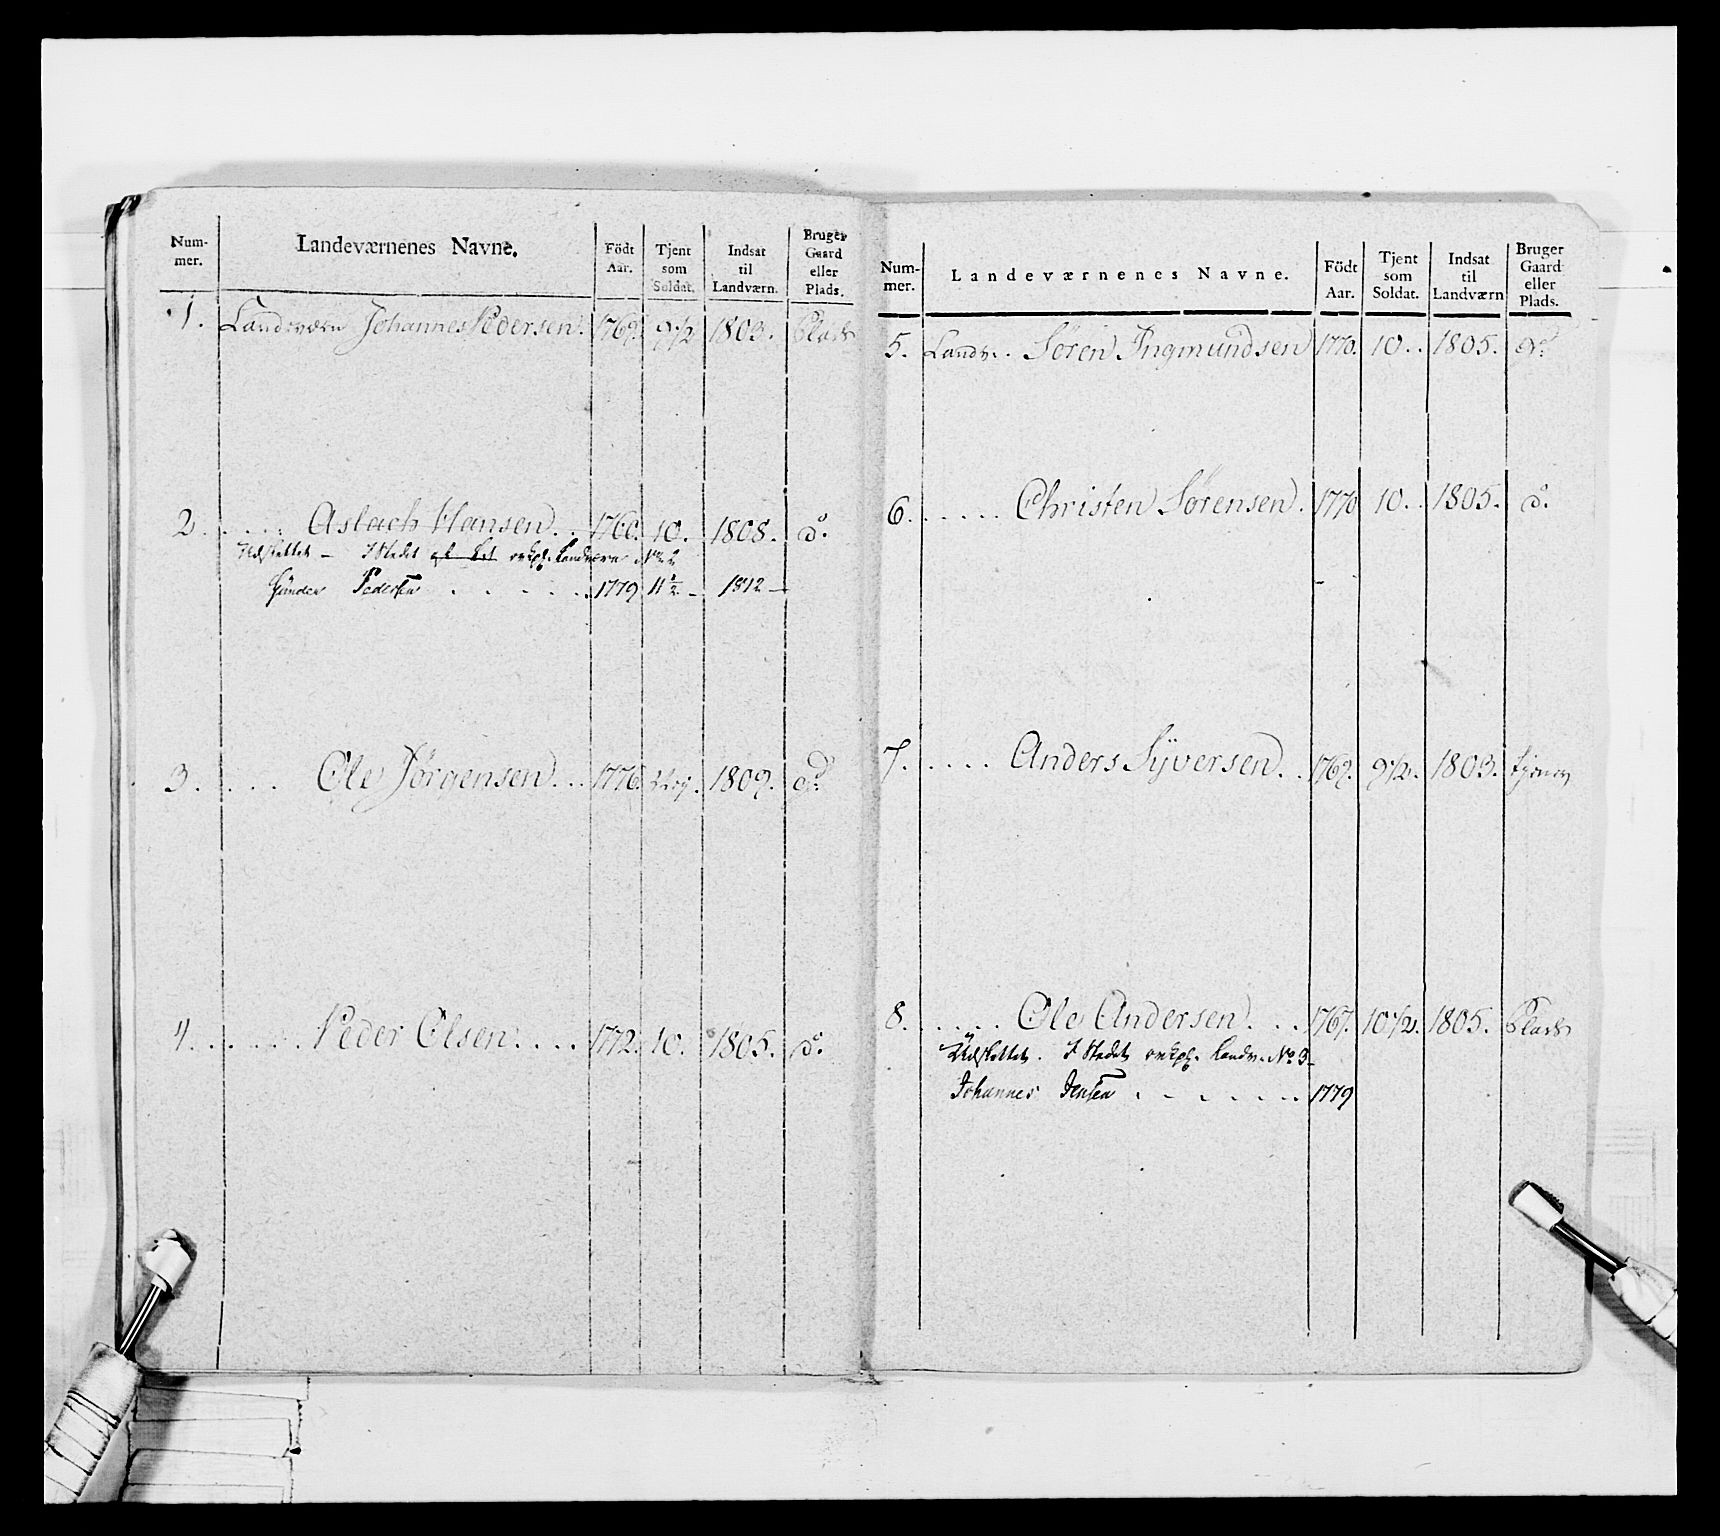 Num-
mer.
Landeværnenes Navne.
Födt
Aar.
Tjent
som
Soldat.
Indsat
til
Landværn.
Bruger
Gaard
eller
Plads.
1. Landeværn Johannes Pedersen. 1769. 9 1/2 1803. Plads
2. . . . . Aslach Hansen. . . 1760. 10. 1808. do.
Udslettet – I Stedet Landværn No 2
Gunder Pedersen . . . . . 1779 11 1/2 – 1812 –
3. . . . Ole Jörgensen. . . 1776. 1809. do.
4. . . . . Peder Olsen. . . . 1772. 10. 1805. do.
Num-
mer.
Landeværnenes Navne.
Födt
Aar.
Tjent
som
Soldat.
Indsat
til
Landværn
Bruger
Gaard
eller
Plads.
5. Landv. Sören Ingmundsen 1770. 10. . 1805. do.
6. . . . . Christen Sørensen. 1770 10. . 1805. do.
7. . . . . Anders Syversen. . 1769. 9 1/2. 1803. tjener
8. . . . . Ole Andersen. . . 1767. 10 1/2. 1805. Plads
Udslettet. I Stedet Landv. No 3 –
Johannes Jensen . . . . . . 1779